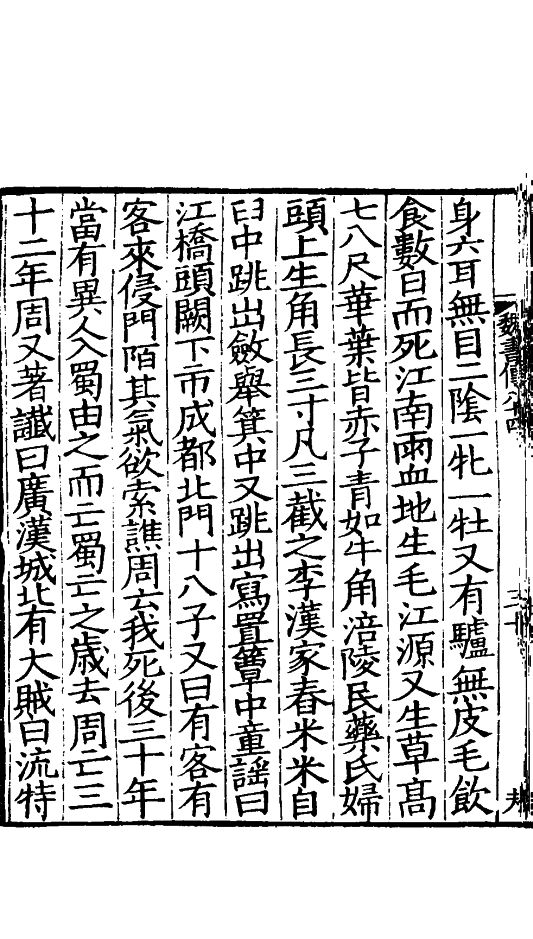 魏書傳八十四
三十
夫
身六耳無目二陰一牝一牡又有驢無皮毛飲
食數日而死江南雨血地生毛江源又生草高
七八尺華葉皆赤子青如牛角涪陵民藥氏婦
頭上生角長三寸凡三截之李漢家舂米米自
臼中跳出斂舉箕中又跳出寫置簟中童謠曰
江橋頭闕下市成都北門十八子又曰有客有
客來侵門陌其氣欲索譙周云我死後三十年
當有異人入蜀由之而亡蜀亡之歲去周亡三
十二年周又著讖曰廣漢城北有大賊曰流特